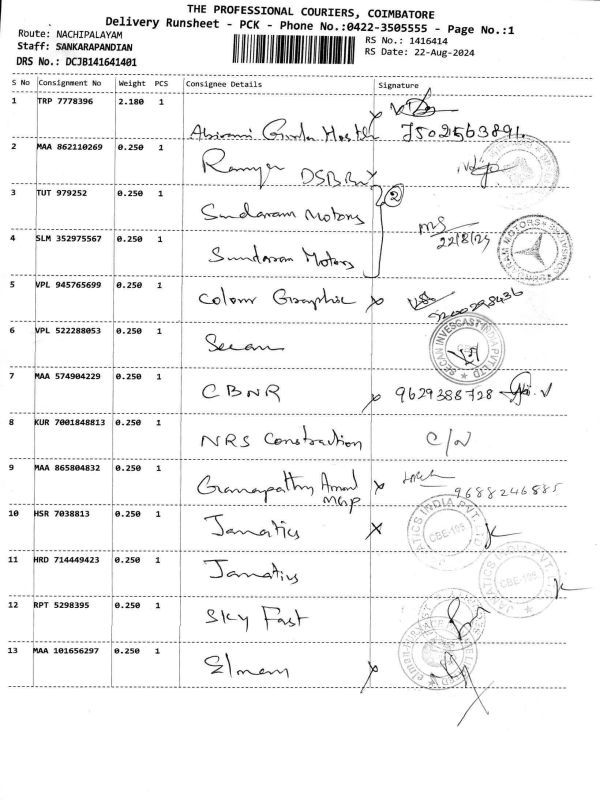 THE PROFESSIONAL COURIERS, COIMBATORE
Delivery Runsheet - PCK - Phone No.:0422-3505555 - Page No.:1
Route: NACHIPALAYAM
RS No.: 1416414
Staff: SANKARAPANDIAN
RS Date: 22-Aug-2024
DRS No.: DCJB141641401
S No Consignment No Weight PCS Consignee Details Signature
1 TRP 7778396 2.180 1
Hostel 7502563891
2 MAA 862110269 0.250 1
Ramya DSBBn
3 TUT 979252 0.250 1 2
Sundaram Motors
22/8/24
4 SLM 352975567 0.250 1
Sundaram Motors
5 VPL 945765699 0.250 1
Colour Graphic
6 VPL 522288053 0.250 1
Secan
SECAN INVESCAST INDIA PVT LTD
7 MAA 574904229 0.250 1
CBNR 9629388728
8 KUR 7001848813 0.250 1
NRS Constraction C/N
9 MAA 865804832 0.250 1
Ganapathy 9688246885
10 HSR 7038813 0.250 1
Janatics
JANATICS INDIA PVT. LTD
CBE-109
11 HRD 714449423 0.250 1
Janatics
JANATICS INDIA PVT. LTD
CBE-109
12 RPT 5298395 0.250 1
SKY Fast
13 MAA 101656297 0.250 1
Elmem